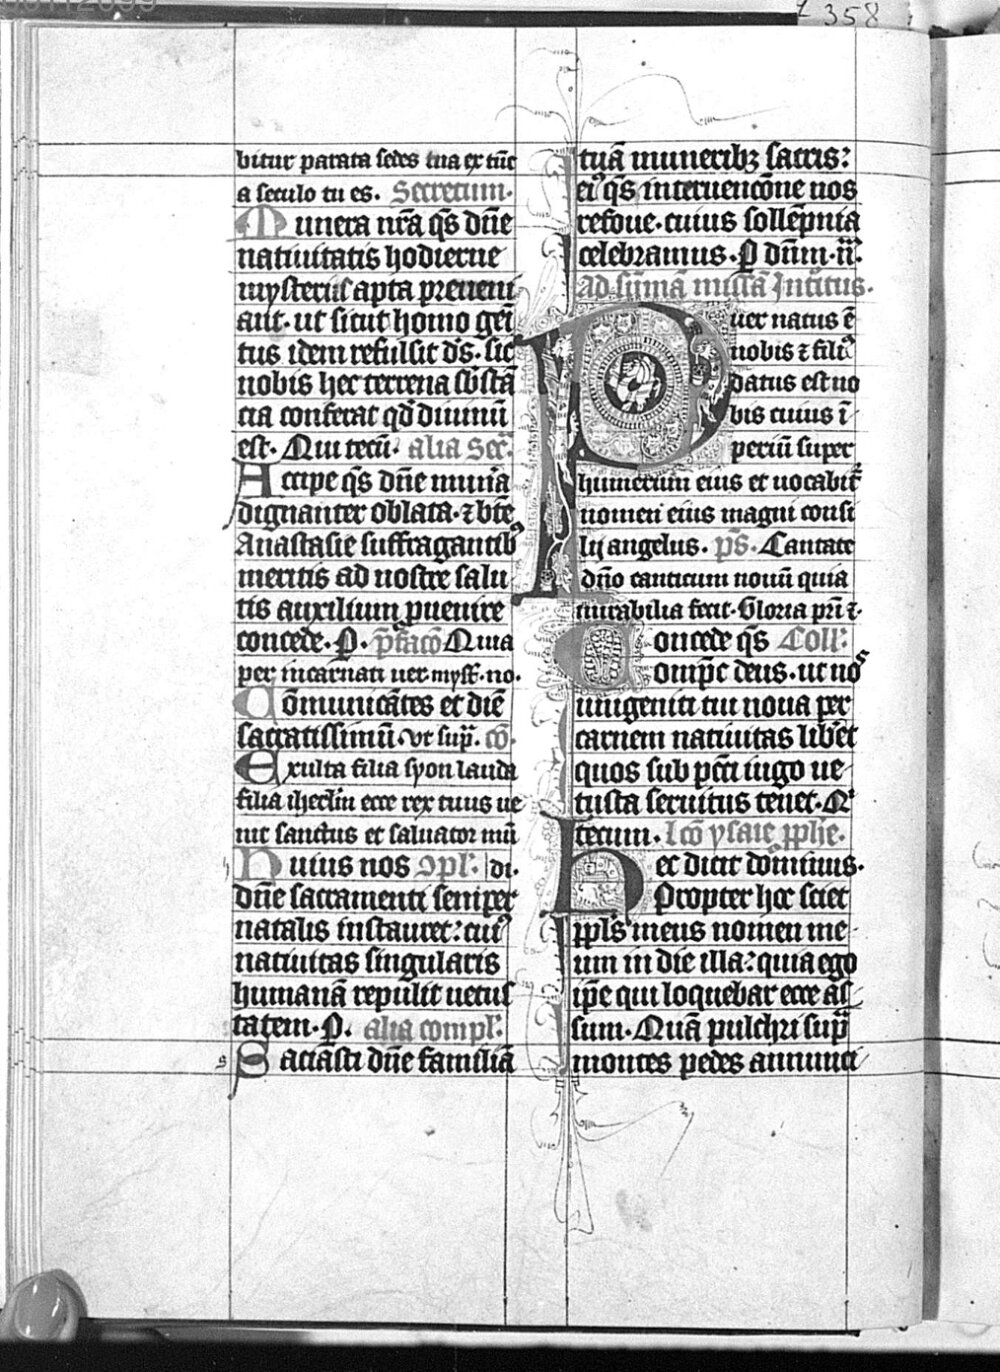 z 358
bitur parata sedes tua ex tũc
a seculo tu es. Secretum.
Munera nr̃a q̃s dñe
natiuitatis hodierne
mysteriis apta preueni
ant. ut sicut homo geĩ
tus idem refulsit d̃s. sic
nobis hec terrena sb̃stã
cia conferat qd̃ diuinũ
est. Qui tecũ. alia Sec̃.
Accipe q̃s dñe mun̾a
dignanter oblata. ⁊ btẽ
Anastasie suffragantibꝰ
meritis ad nostre salu
tis auxilium ꝓuenire
concede. P. p̃facõ Quia
per incarnati uer. myst̃. no.
Cõmunicãtes et diẽ
sacratissimũ. vt sup̃. cõ.
Exulta filia syon lauda
filia iherl̃m ecce rex tuus ue
nit sanctus et saluator mũ
Huius nos Ꝯpl̃. di.
dñe sacramenti semper
natalis instauret: cuiꝰ
natiuitas singularis
humanã repulit uetus
tatem. P. alia compl̃.
Saciasti dñe familiã
tuã muneribꝫ sacris:
eiꝰ q̃s interuencõne nos
refoue. cuius sollẽpnia
celebramus. P dñm. nr̃.
Ad sũmã missã Introitus.
Puer natus ẽ
nobis ⁊ filiꝰ
datus est no
bis cuius ĩ
periũ super
humerum eius et uocabit᷑
nomen eius magni consi
lij angelus. p̃s. Cantate
dño canticum nouũ quia
mirabilia fecit. Gloria pr̃i ⁊.
Concede q̃s Coll̃.
omp̃c deus. ut nos
unigeniti tui noua per
carnem natiuitas liber̃t
quos sub pcc̃i iugo ue
tusta seruitus tenet. Q
tecum. Lcõ ysaie ꝓphe.
Hec dicit dominus.
Propter hoc sciet
ppl̃s meus nomen me
um in die illa: quia ego
ip̃e qui loquebar ecce as
sum. Quã pulchri sup̃
montes pedes annunci